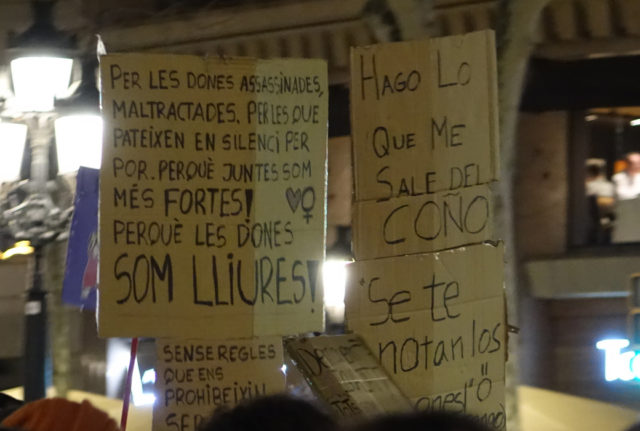 PER LES DONES ASSASSINADES,
MALTRACTADES. PER LES QUE
PATEIXEN EN SILENCI PER
POR. PERQUÈ JUNTES SOM
MÉS FORTES!
PERQUÈ LES DONES
SOM LLIURES!
SENSE REGLES
QUE ENS
PROHIBEIXIN
SER
HAGO LO
QUE ME
SALE DEL
COÑO
"Se te
notan los
ones!" Ö